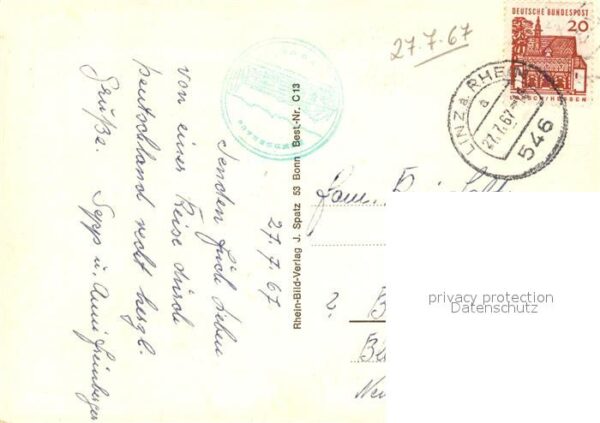 27.7.67
DEUTSCHE BUNDESPOST
20
LORSCH/HESSEN
LINZ a. RHEIN
a
27.7.67
546
27.7.67
Senden Euch lieben
von einer Reise durch
Deutschland recht herzl.
Grüße. Sepp u. Anni
Rhein-Bild-Verlag J. Spatz 53 Bonn Best.-Nr. C 13
Fam.
privacy protection
Datenschutz